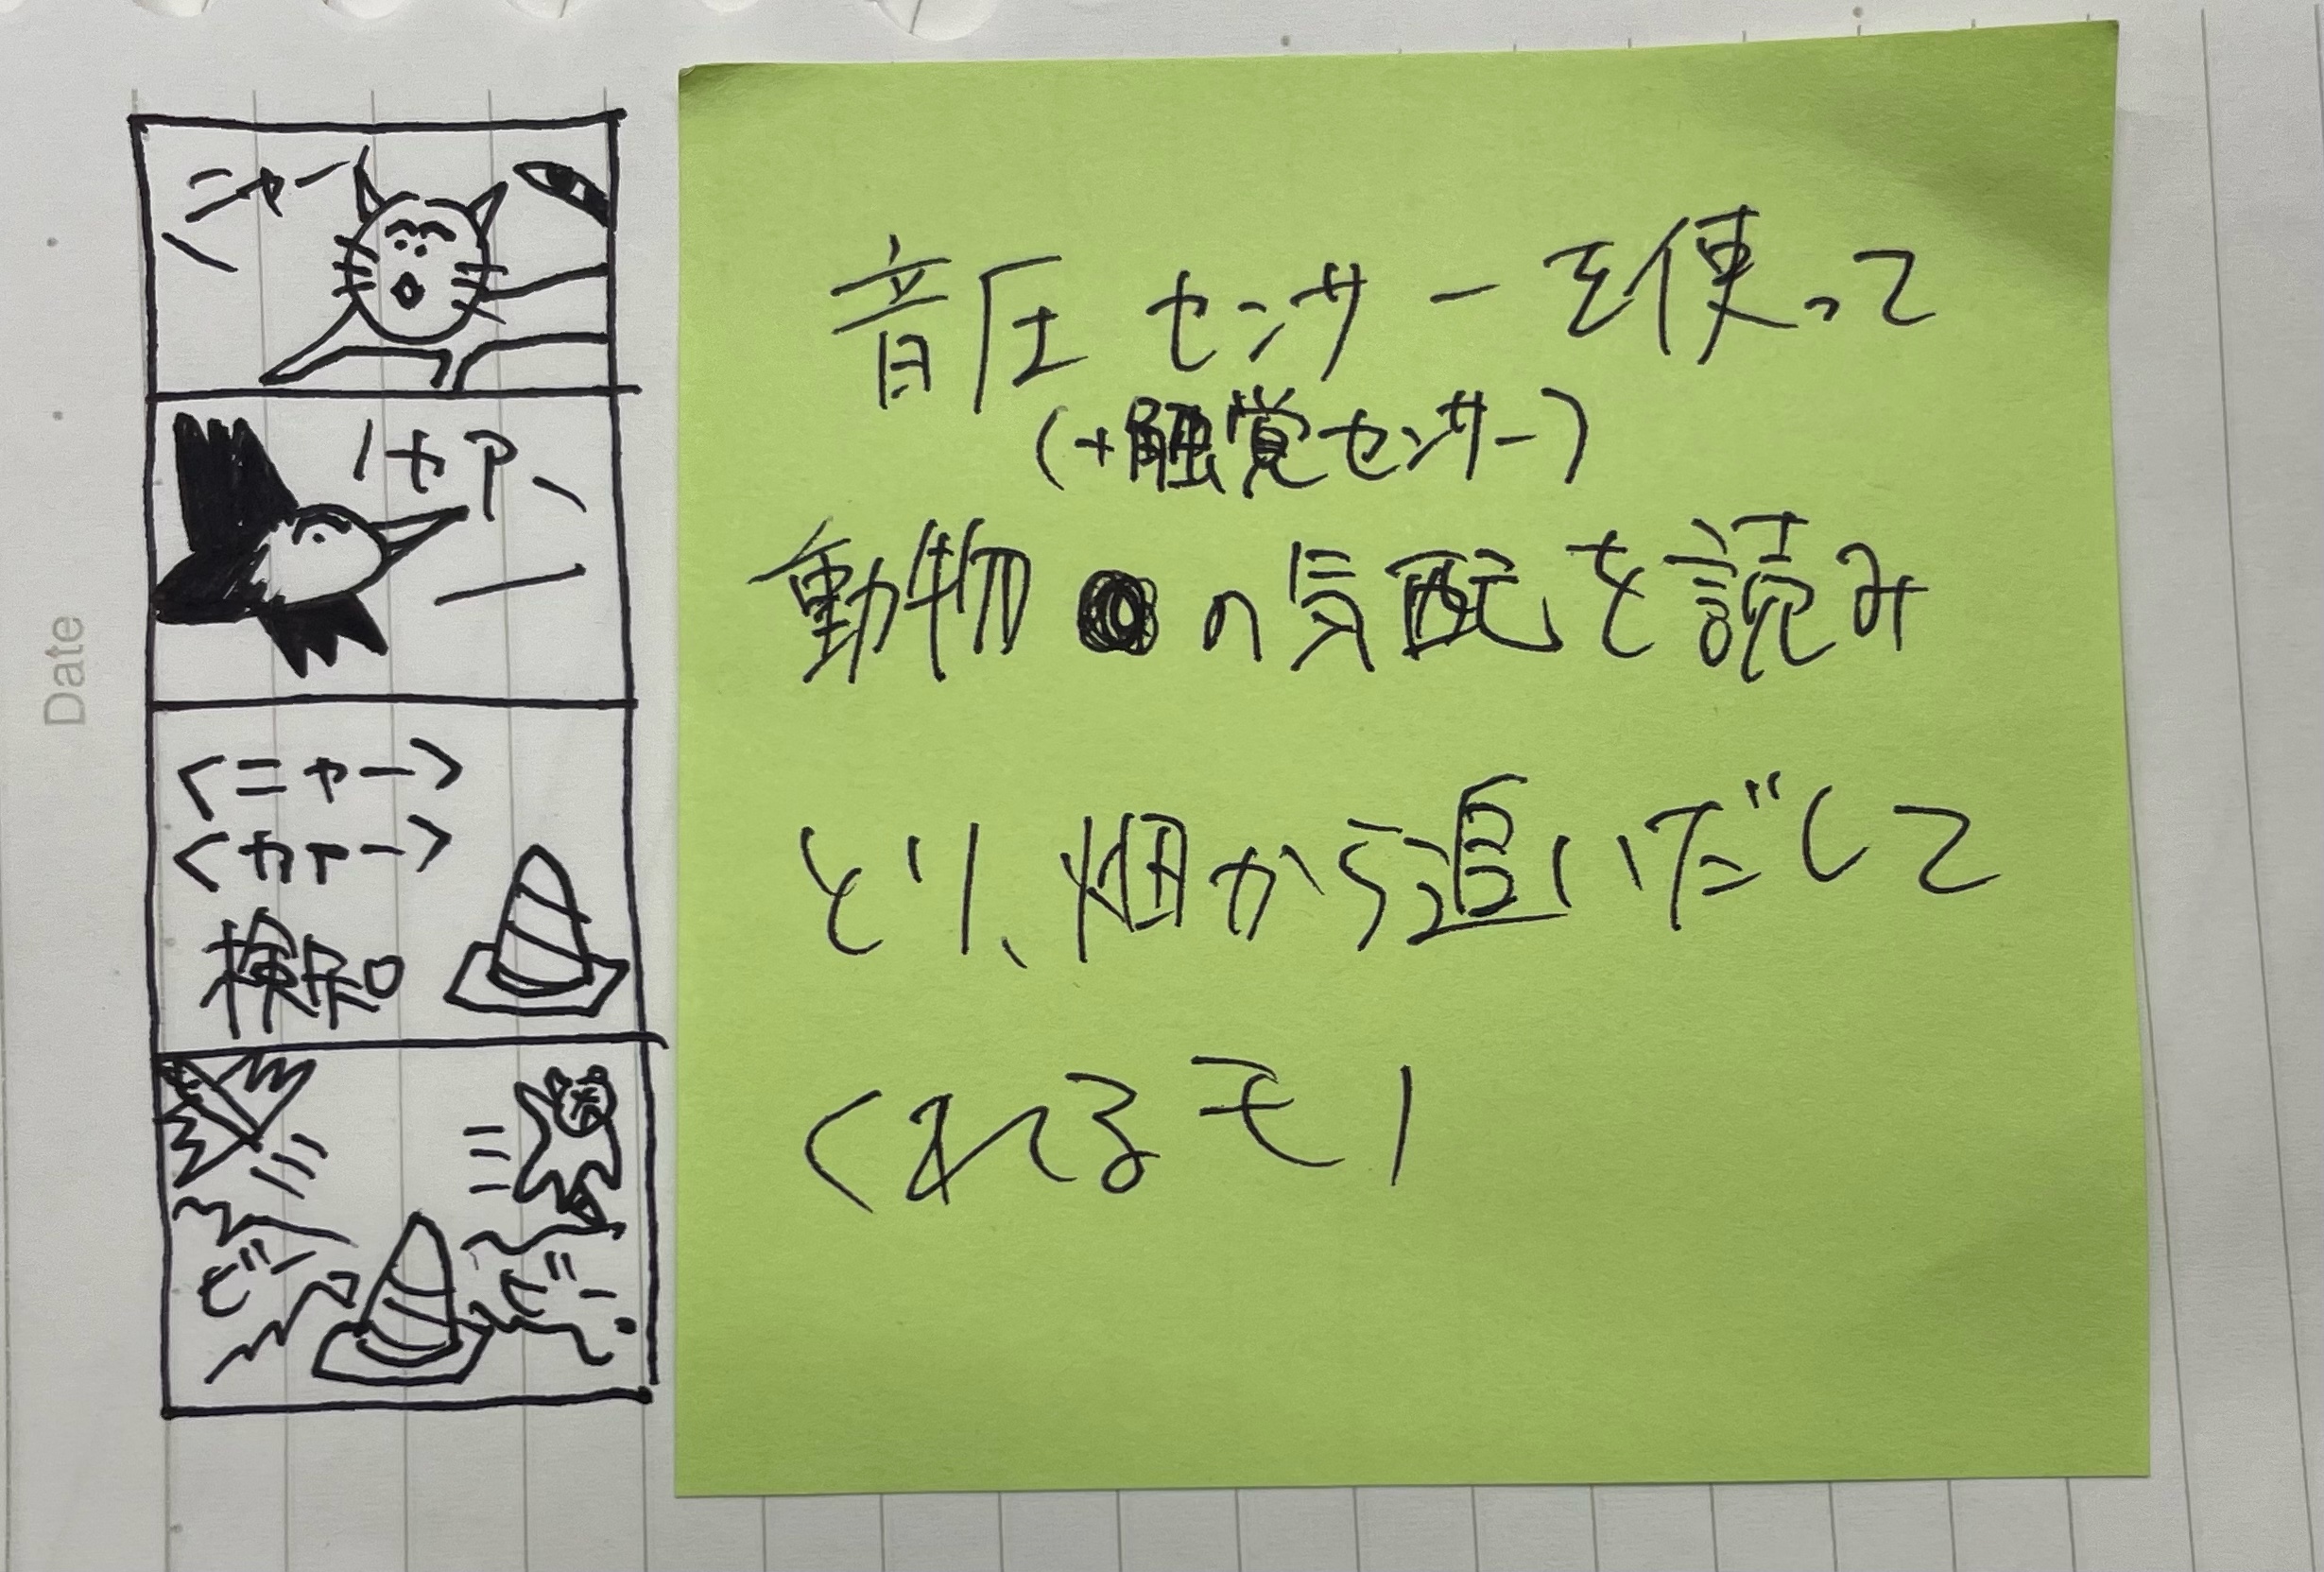 Date
ニャー
<ニャー>
<カァー>
検知
ビー
ビー
音圧センサーを使って
(+触覚センサー)
動物の気配を読み
とり、畑から追いだして
くれるモノ